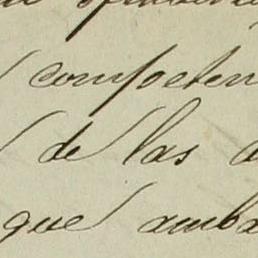 competen
de las a
que amba